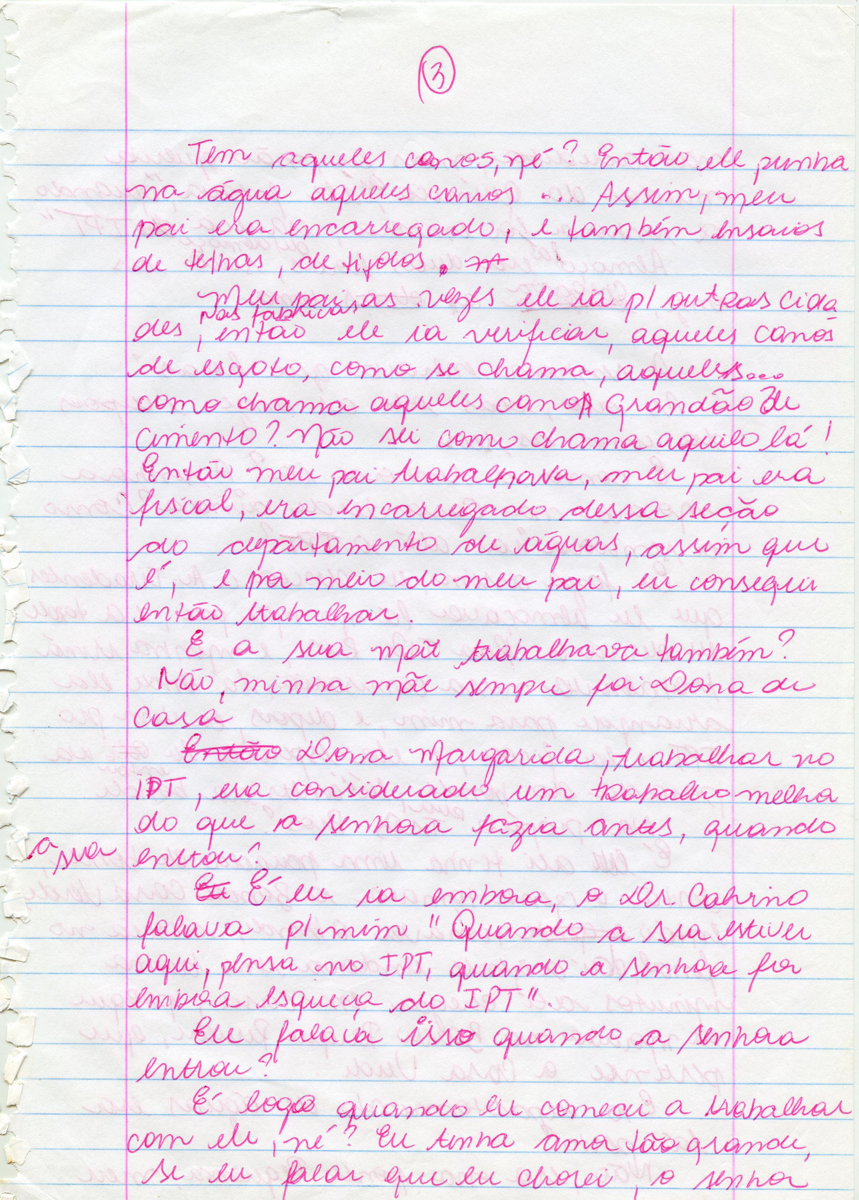 3
Tem aqueles canos, né? Então ele punha
na água aqueles canos ... Assim, meu
pai era encarregado, e também ensaios
de telhas, de tijolos.
Meu pai, as vezes ele ia p/ outras cida
des, nas fábricas, então ele ia verificar, aqueles canos
de esgoto, como se chama, aqueles...
como chama aqueles canos Grandão de
cimento? Não sei como chama aquilo lá!
Então meu pai trabalhava, meu pai era
fiscal, era encarregado dessa seção
do departamento de águas, assim que
é, e por meio do meu pai, eu consegui
então trabalhar.
E a sua mãe trabalhava também?
Não, minha mãe sempre foi Dona de
Casa
Então Dona Margarida, trabalhar no
IPT, era considerado um trabalho melho
do que a senhora fazia antes, quando
a sua entrou?
Eu É eu ia embora, o Dr. Cabrino
falava p/ mim "Quando a sra estiver
aqui, pensa no IPT, quando a senhora for
embora esqueça do IPT".
Eu falava isso quando a senhora
entrou?
É logo quando eu comecei a trabalhar
com ele, né? Eu tinha ama tão grande,
se eu falar que eu chorei, o senhor